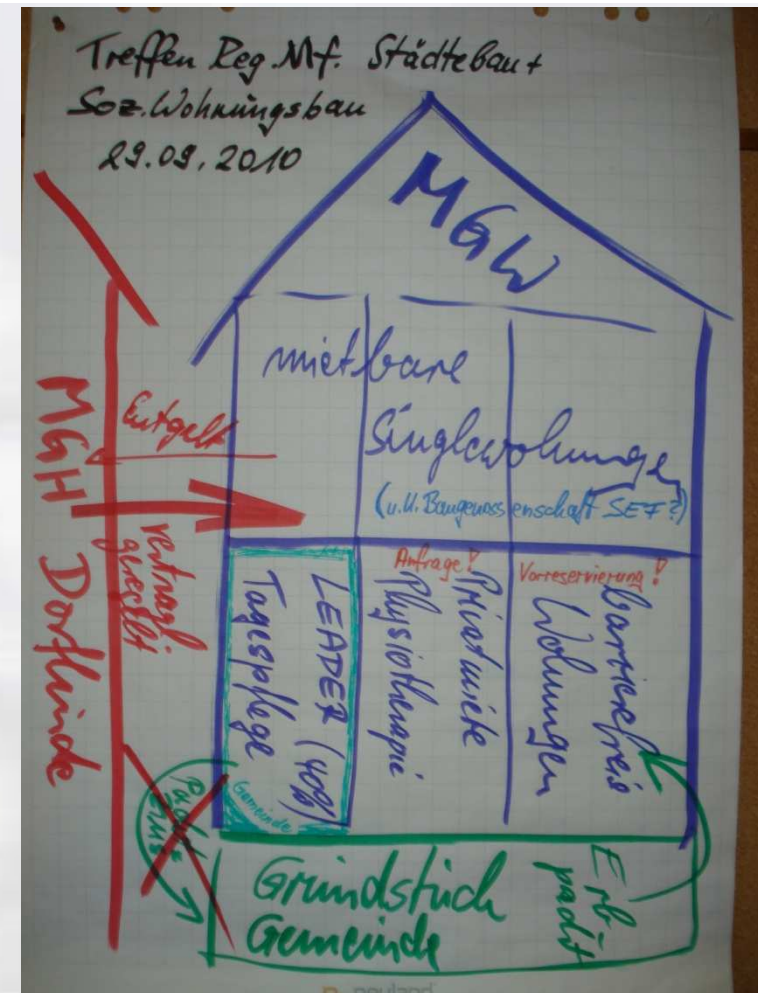 Treffen Reg.Mf. Städtebau +
Soz.Wohnungsbau
29.09.2010
MGW
mietbare
Singlewohnungen
(u.U. Baugenossenschaft SEF?)
MGH Dorflinde
Entgelt
vertragl.
geregelt
LEADER (40%)
Tagespflege
Gemeinde
Anfrage!
Privatmiete
Physiotherapie
Vorreservierung!
barrierefreie
Wohnungen
Pacht-
zins
Grundstück
Gemeinde
Erb
pacht
neuland